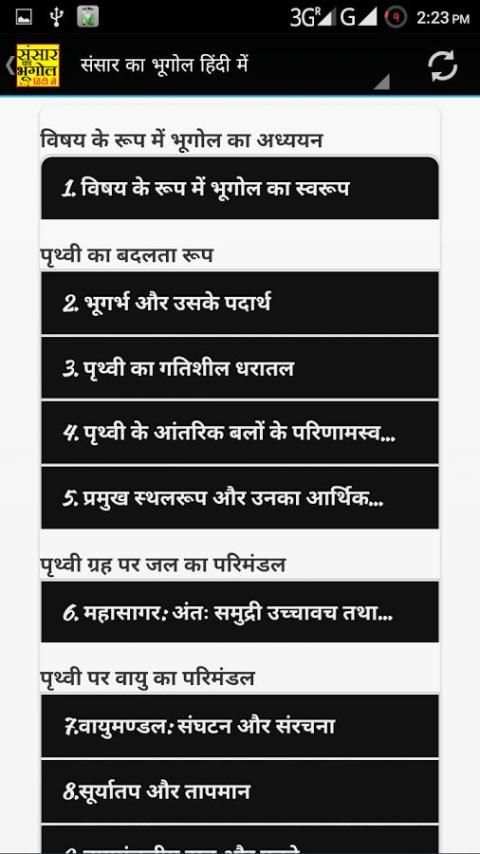 3G R G 2:23 PM
संसार का भूगोल हिंदी में
संसार का भूगोल हिंदी में
विषय के रूप में भूगोल का अध्ययन
1. विषय के रूप में भूगोल का स्वरूप
पृथ्वी का बदलता रूप
2. भूगर्भ और उसके पदार्थ
3. पृथ्वी का गतिशील धरातल
4. पृथ्वी के आंतरिक बलों के परिणामस्व...
5. प्रमुख स्थलरूप और उनका आर्थिक...
पृथ्वी ग्रह पर जल का परिमंडल
6. महासागर: अंतः समुद्री उच्चावच तथा...
पृथ्वी पर वायु का परिमंडल
7.वायुमण्डल: संघटन और संरचना
8.सूर्यातप और तापमान